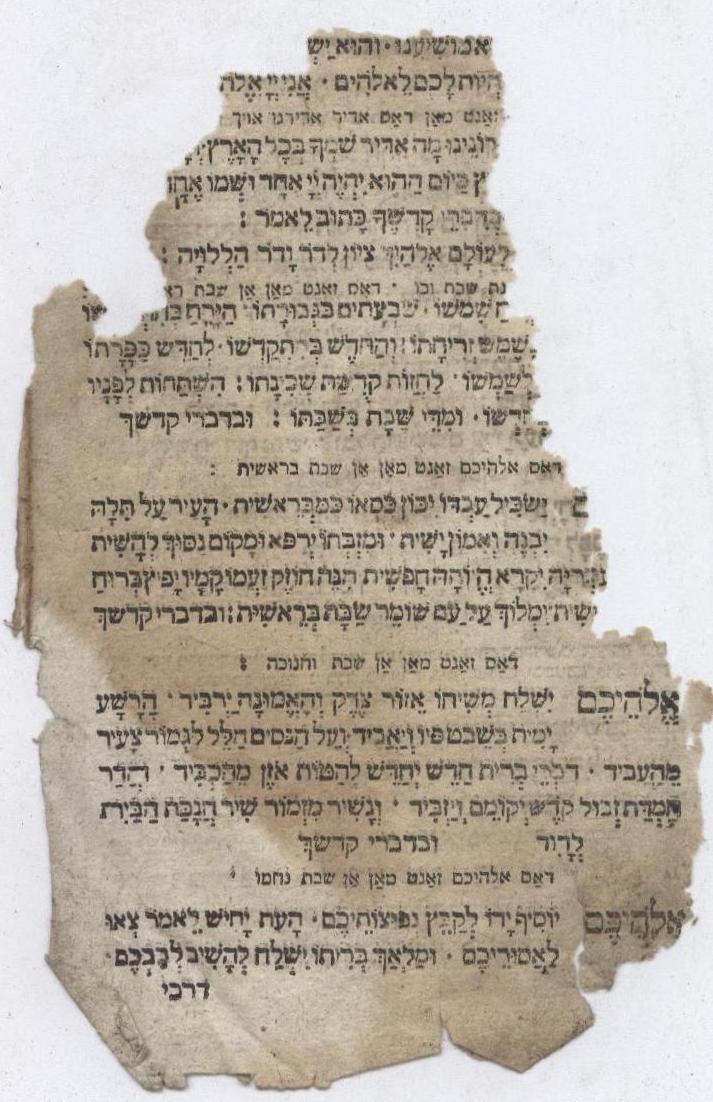 מושיענו · והוא יש
היות לכם לאלהים · אני יי אלה
זאגט מאן דאס אדיר אדירנו אויך
מה אדיר שמך בכל הארץ
ביום ההוא יהיה יי אחד ושמו
ובדברי קדשך כתוב לאמר :
לעולם אלהיך ציון לדר ודר הללויה :
שבת וכו · דאס זאגט מאן אן שבת
שמשו · שבעתים בגבורתו · הירח
שמש זריחתו : והחדש ברית קדשו · לחדש כפרתו
לשמשו · לחזות קדמת שכינתו : השתחות לפניו
ומדי שבת בשבתו : ובדברי קדשך
דאס אלהיכם זאגט מאן אן שבת בראשית :
ישכיל עבדו יכון כסאו כמבראשית · העיר על תלה
יבנה ואמון ישית · ומזבחו ירפא ומקום נסוך להשית
יקרא
ימלוך על עם שומר שבת בראשית : ובדברי קדשך
דאס זאגט מאן אן שבת וחנוכה :
אלהיכם ישלח משיחו אזור צדק והאמונה ירביד · הרשע
ימית בשבט פיו ויאביד · ועל הנסים חלל לגמור צעיר
מהעביד · דברי ברית חדש יחדש להטות אזן מהכביד · והדר
חמדת זבול קדש יקומם ויזביד · ונשיר מזמור שיר חנכת הבית
לדוד ובדברי קדשך
דאס אלהיכם זאגט מאן אן שבת נחמו :
אלהיכם יוסיף ידו לקבץ נפוצותיכם · העת יחיש לאמר צאו
לאסוריכם · ומלאך בריתו ישלח להשיב לבבכם ·
דרכי